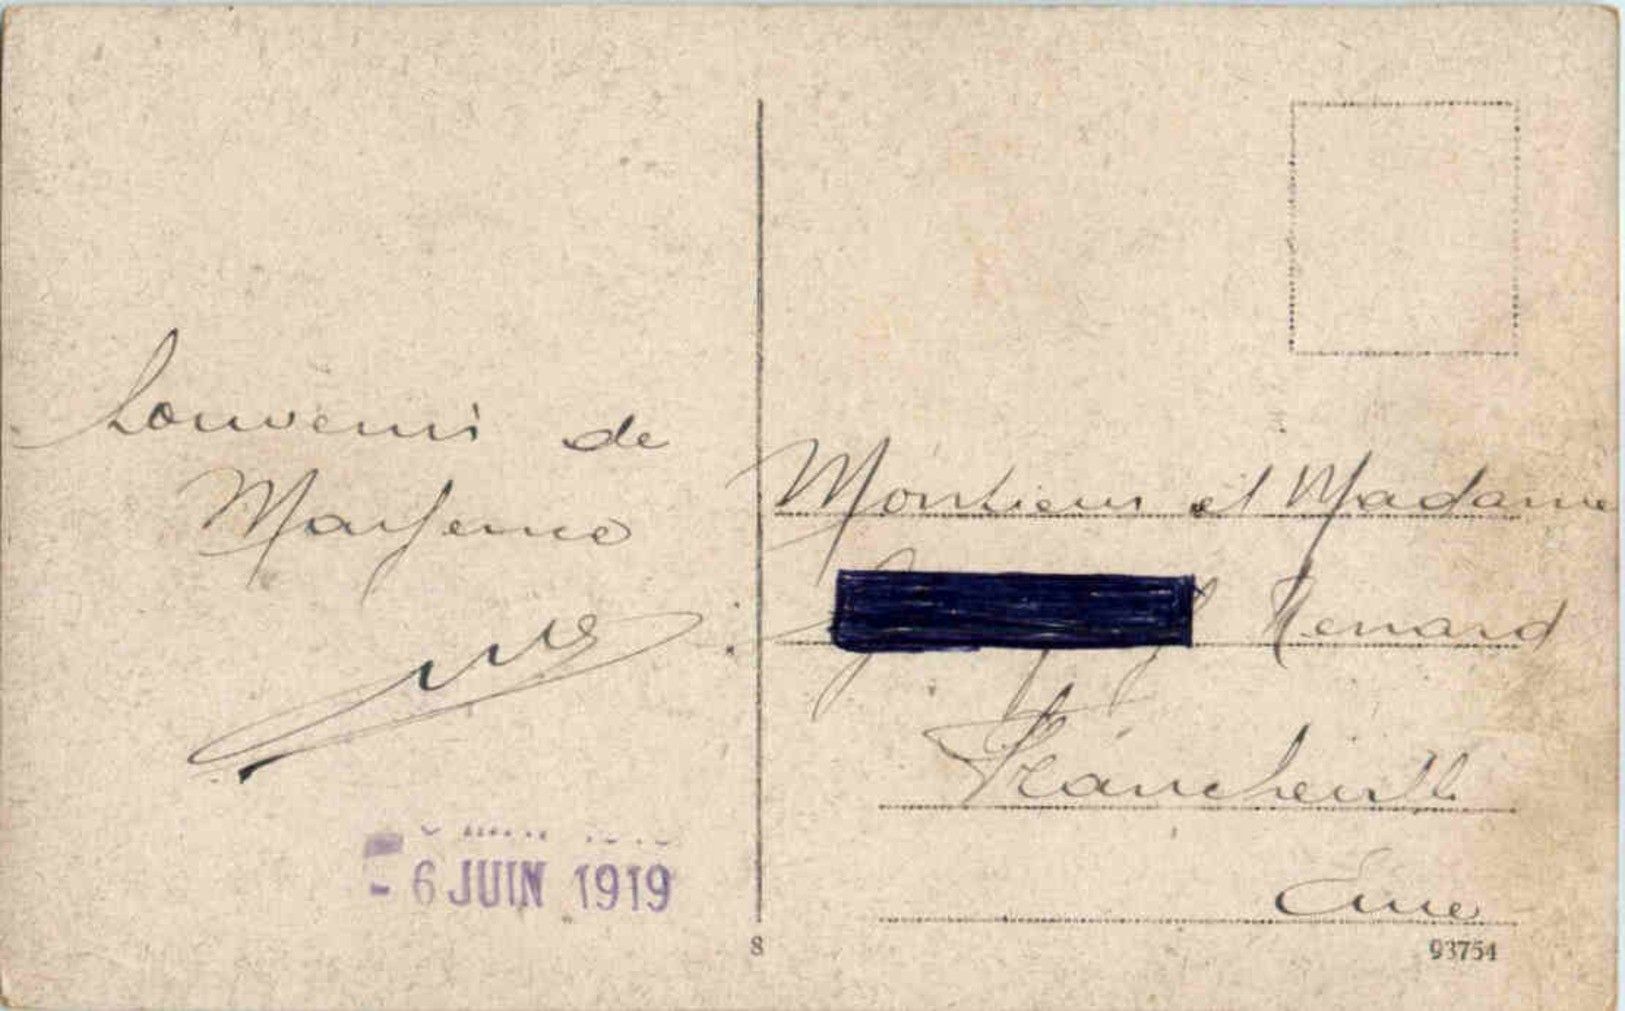 Souvenir de
Mayence
Monsieur et Madame
Renard
Francheville
Eure
- 6 JUIN 1919
8
93754